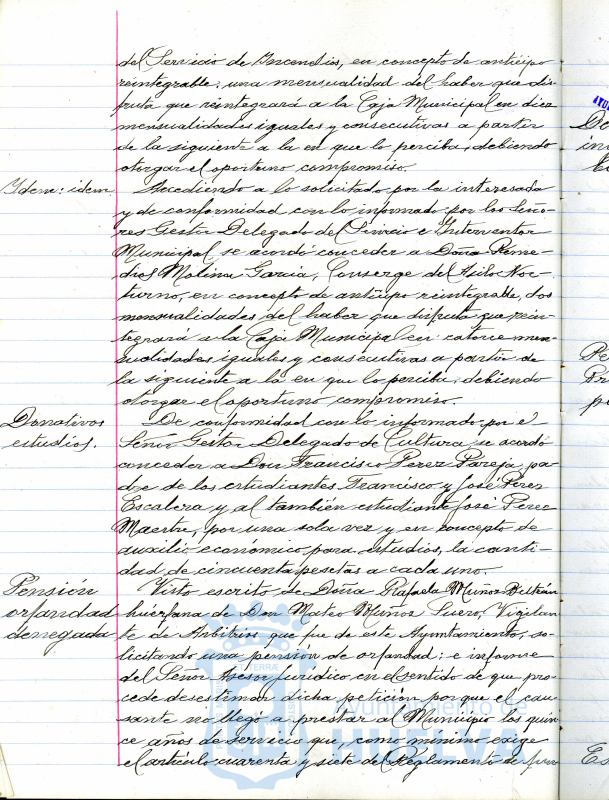 del Servicio de Incendios, en concepto de anticipo
reintegrable, una mensualidad del haber que dis-
fruta que reintegrará a la Caja Municipal en diez
mensualidades iguales y consecutivas a partir
de la siguiente a la en que lo perciba, debiendo
otorgar el oportuno compromiso.
Idem: idem.
Accediendo a lo solicitado por la interesada
y de conformidad con lo informado por los Seño-
res Gestor Delegado del Servicio e Interventor
Municipal, se acordó conceder a Doña Reme-
dios Molina García, Conserge del Asilo Noc-
turno, en concepto de anticipo reintegrable, dos
mensualidades del haber que disfruta que rein-
tegrará a la Caja Municipal en catorce men-
sualidades iguales y consecutivas a partir de
la siguiente a la en que lo perciba, debiendo
otorgar el oportuno compromiso.
Donativos
estudios.
De conformidad con lo informado por el
Señor Gestor Delegado de Cultura se acordó
conceder a Don Francisco Perez Pareja, pa-
dre de los estudiantes Francisco y José Perez
Escalera y al también estudiante José Perez
Maestre, por una sola vez y en concepto de
auxilio económico para estudios, la canti-
dad de cincuenta pesetas a cada uno.
Pensión
orfandad
denegada
Visto escrito de Doña Rafaela Muñoz Beltrán
huérfana de Don Mateo Muñoz Suero, Vigilan-
te de Arbitrios que fue de este Ayuntamiento, so-
licitando una pensión de orfandad; e informe
del Señor Asesor Jurídico en el sentido de que pro-
cede desestimar dicha petición porque el cau-
sante no llegó a prestar al Municipio los quin-
ce años de servicio que, como mínimo exige
el artículo cuarenta y siete del Reglamento de fun-
Ayuntamiento de
HUELVA